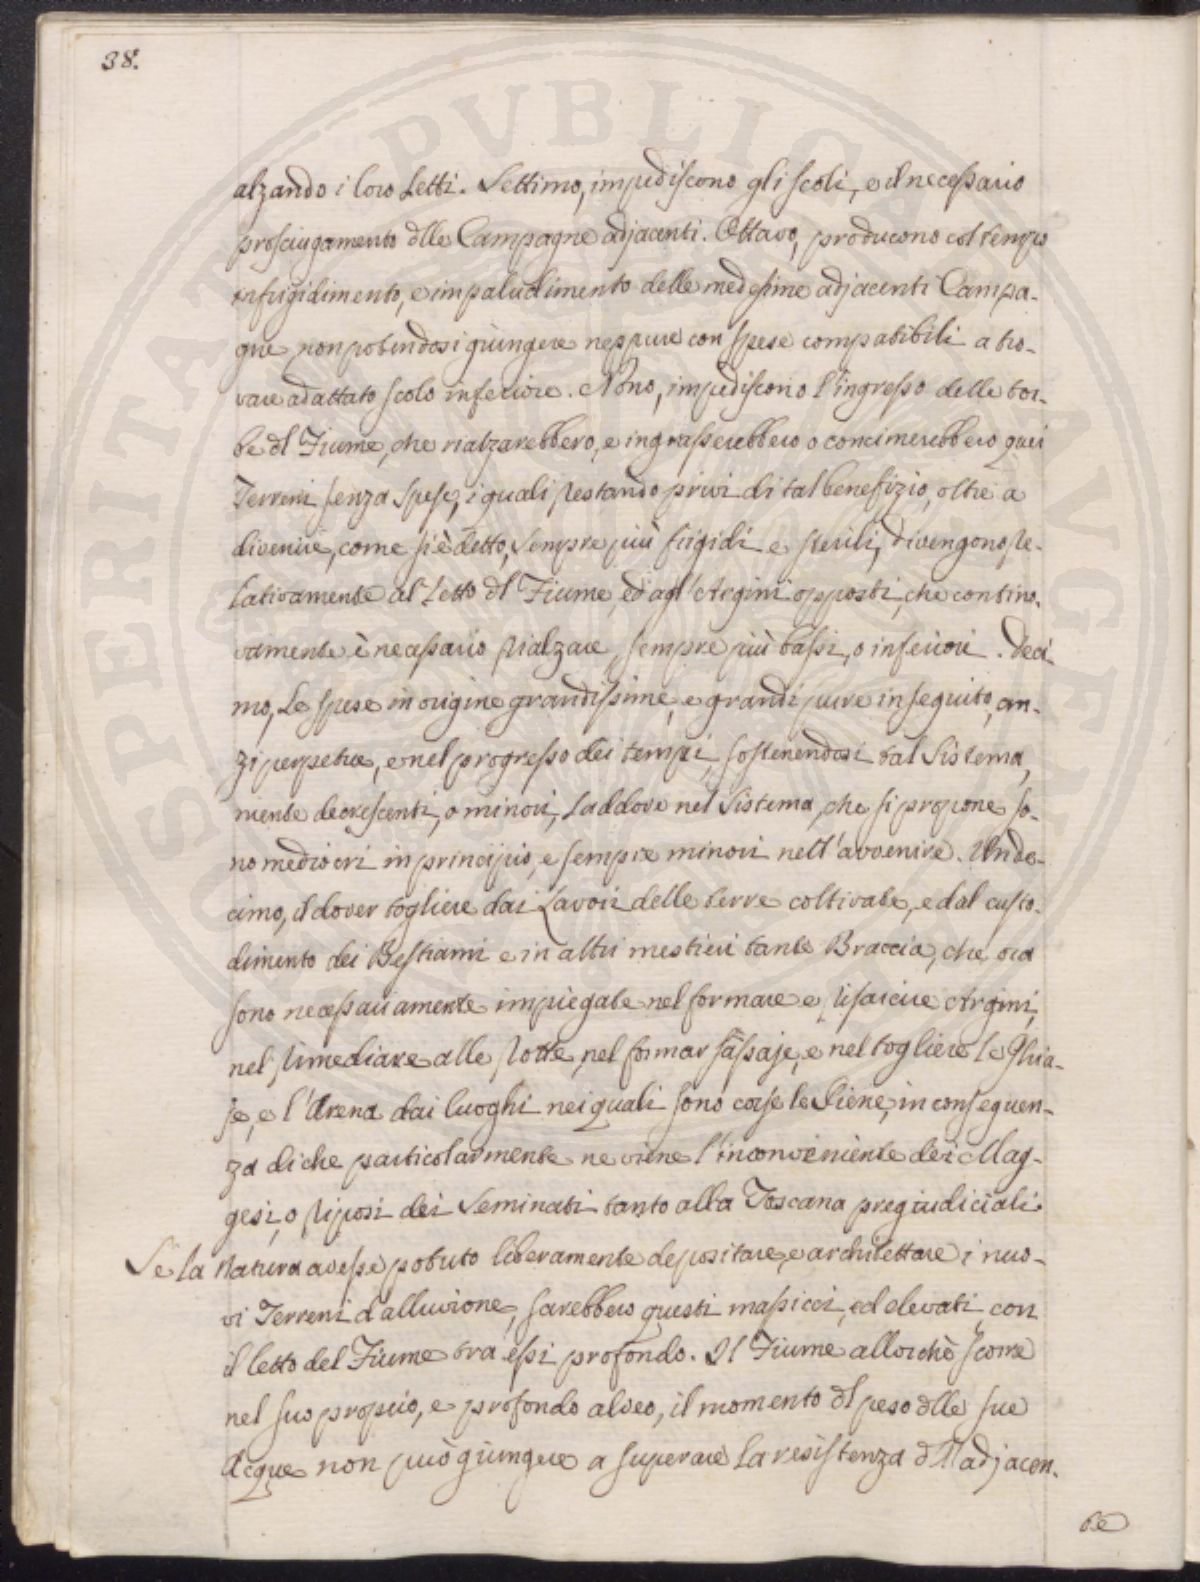 38.
alzando i loro Letti. Settimo, impediscono gli scoli, e il necessario
prosciugamento dlle Campagne adjacenti. Ottavo, producono col tempo
infrigidimento, e impaludimento delle medesime adjacenti Campa-
gne non potendosi giungere neppure con spese compatibili a tro-
vare adattato scolo inferiore. Nono, impediscono l'ingresso delle tor-
be dl Fiume, che rialzarebbero, e ingrasserebbero o concimerebbero quei
Terreni senza spese, i quali restando privi di tal benefizio, oltre a
divenire, come si è detto, sempre più frigidi e sterili, divengono, re-
lativamente al Letto dl Fiume, ed agl'Argini opposti, che contino-
vamente è necessario rialzare, sempre più bassi, o inferiori. Deci-
mo, Le spese in origine grandissime, e grandi pure in seguito, an-
zi perpetue, e nel progresso dei tempi, sostenendosi tal Sistema,
niente decrescenti, o minori, laddove nel Sistema, che si propone so-
no mediocri in principio, e sempre minori nell'avvenire. Unde-
cimo, il dover togliere dai Lavori delle terre coltivate, e dal custo-
dimento dei Bestiami e in altri mestieri tante Braccia, che ora
sono necessariamente impiegate nel formare e risarcire Argini,
nel rimediare alle Rotte, nel formar Passaje, e nel togliere le Ghia-
je, e l'Arena dai luoghi nei quali sono corse le Piene, in conseguen-
za di che particolarmente ne viene l'inconveniente dei Mag-
gesi, o riposi dei Seminati tanto alla Toscana pregiudiciali.
Se la Natura avesse potuto liberamente depositare, e architettare i nuo-
vi Terreni d'alluvione, sarebbero questi massicci, ed elevati, con
il letto del Fiume tra essi profondo. Il Fiume allorchè scorre
nel suo proprio, e profondo alveo, il momento dl peso dlle sue
Acque non può giungere a superare la resistenza dll'adjacen-
te
PVBLICAE